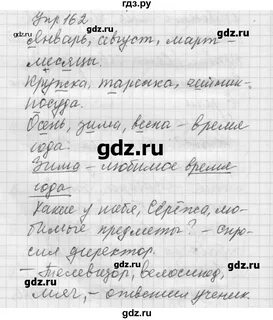 Упр 162
Январь, август, март –
месяцы.
Кружка, тарелка, чайник –
посуда.
Осень, зима, весна – время
года.
Зима – любимое время
года.
– Какие у тебя, Серёжа, лю-
бимые предметы? – спро-
сил директор.
– Телевизор, велосипед,
мяч, – ответил ученик.
gdz.ru
gdz.ru
gdz.ru
gdz.ru
gdz.ru
gdz.ru
gdz.ru